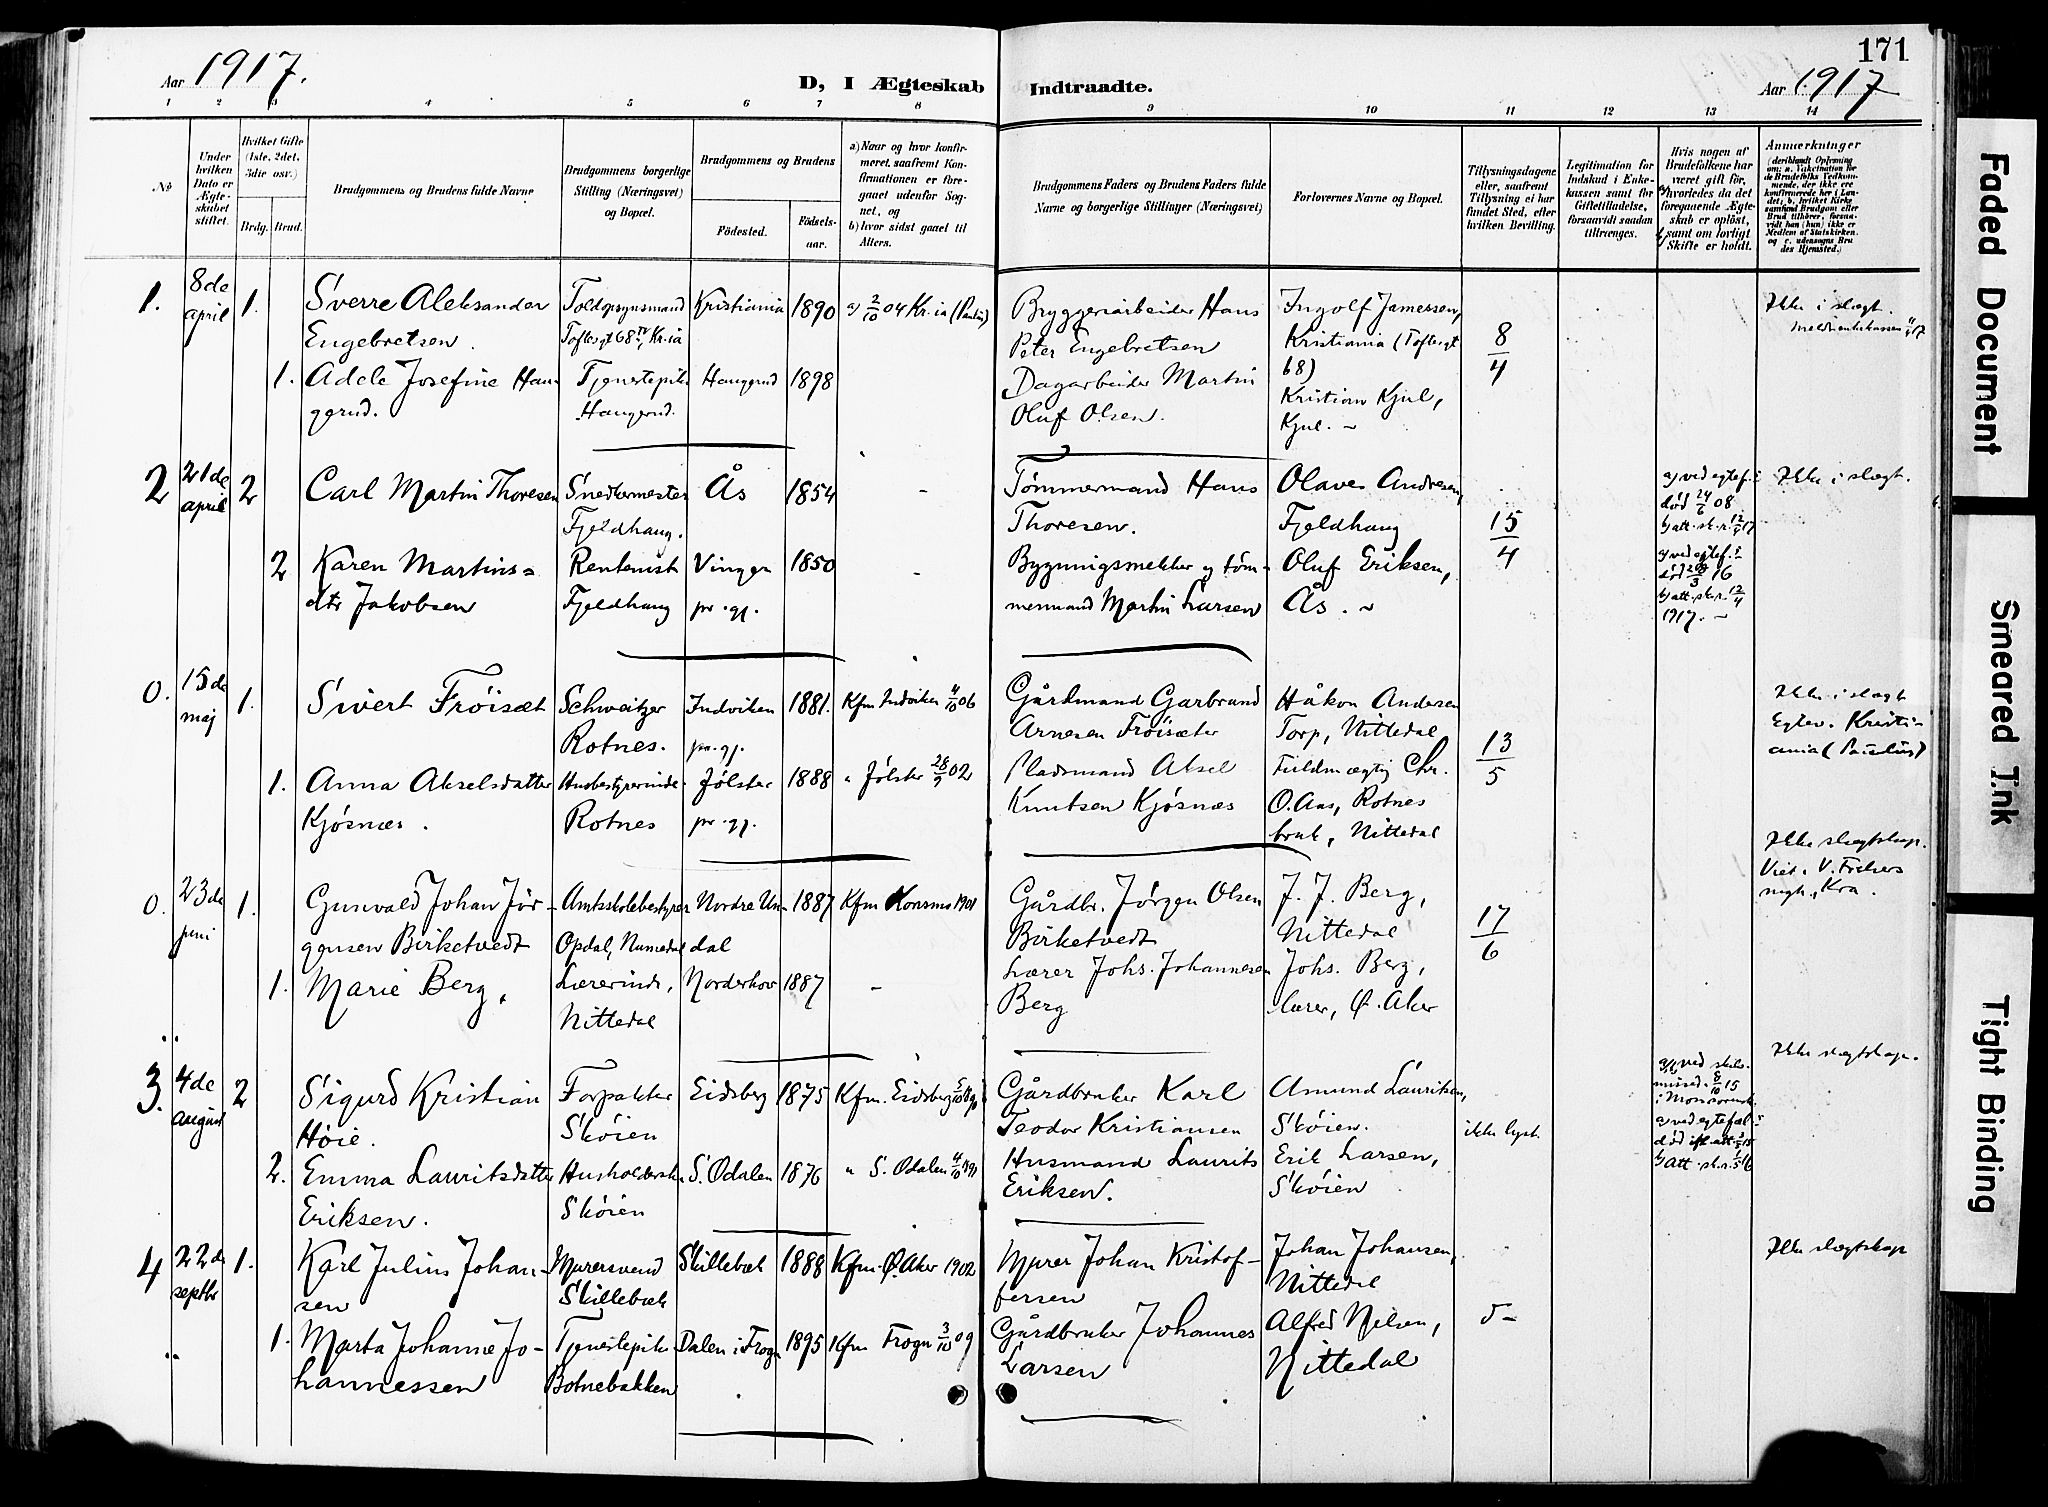 171
Aar 1917.
D, I Ægteskab Indtraadte.
Aar 1917
1 2 3 4 5 6 7 8 9 10 11 12 13 14
No
Under hvilken Dato er Ægteskabet stiftet.
Hvilket Gifte (1ste, 2det, 3die osv.)
Brdg. Brud.
Brudgommens og Brudens fulde Navne
Brudgommens borgerlige Stilling (Næringsvei) og Bopæl.
Brudgommens og Brudens
Fødested.
Fødselsaar.
a) Naar og hvor konfirmeret, saafremt Konfirmationen er foregaaet udenfor Sognet, og
b) hvor sidst gaaet til Alters.
Brudgommens Faders og Brudens Faders fulde Navne og borgerlige Stillinger (Næringsvei)
Forlovernes Navne og Bopæl.
Tillysningsdagene eller, saafremt Tillysning ei har fundet Sted, efter hvilken Bevilling.
Legitimation for Indskud i Enkekassen samt for Giftetilladelse, forsaavidt saadan tiltrænges.
Hvis nogen af Brudefolkene har været gift før, hvorledes da det foregaaende Ægteskab er opløst, samt om lovligt Skifte er holdt.
Anmerkninger
(deriblandt Oplysning om: a. Vaccination for de Brudefolks Vedkommende, der ikke ere konfirmerede her i Landet; b. hvilket Kirkesamfund Brudgom eller Brud tilhører, forsaavidt han (hun) ikke er Medlem af Statskirken, og c. udensogns Brudes Hjemsted.)
1. 8de april 1. Sverre Aleksander Engebretsen. Toldopsynsmand Toftesgt 68 IV, Kr.ia Kristiania 1890 a) 2/10 04 Kr.ia (Paulus)
Bryggeriarbeider Hans Peter Engebretsen
Ingolf Jamessen, Kristiania (Toftesgt 68)
8/4
Ikke i slægt.
1. Adele Josefine Haugerud. Tjenestepike Haugerud. Haugerud 1898
Dagarbeider Martin Oluf Olsen.
Kristian Kjul, Kjul.
2 21de april 2 Carl Martin Thoresen Snedkermester Fjeldhaug. Ås 1854 -
Tømmermand Hans Thoresen.
Olaves Andresen, Fjeldhaug
15/4
a) ved egtef. død 24/6 08
b) att. sk.r. 12/4 17
Ikke i slægt.
2 Karen Martinsdtr Jakobsen Rentenist Fjeldhaug Vinger pr. gj. 1850 -
Bygningsmekker og tømmermand Martin Larsen
Oluf Eriksen, Ås.
a) ved egtef. død 20/3 16
b) att. sk.r. 12/4 1917.
0. 15de maj 1. Sivert Frøisæt Schweitzer Rotnes. Indviken pr. gj. 1881. Kfm Indviken 4/10 06
Gårdmand Garbrand Arnesen Frøisæter
Håkon Andersen Torp, Nittedal
13/5
Ikke i slægt
Egtev. Kristiania (Paulus)
1. Anna Akselsdatter Kjøsnæs. Husbestyrerinde Rotnes Jølster pr. gj. 1888 " Jølster 28/9 02
Pladsmand Aksel Knutsen Kjøsnæs
Fuldmægtig Chr. O. Aas, Rotnes bruk, Nittedal
0. 23de juni 1. Gunvald Johan Jørgensen Birketvedt Amtsskolebestyrer Opdal, Numedal Nordre Undal 1887 Kfm Konsmo 1901
Gårdbr. Jørgen Olsen Birketvedt
J. J. Berg, Nittedal
17/6
Ikke slægtskap.
Viet i V. Frelsers
mgh., Kra.
1. Marie Berg, Lærerinde, Nittedal Norderhov 1887 -
Lærer Johs. Johannesen Berg
Johs. Berg, lærer, Ø. Aker
3. 4de august 2 Sigurd Kristian Høie. Forpakter Skøien Eidsberg 1875 Kfm. Eidsberg 5/10 1890
Gårdbruker Karl Teodor Kristiansen
Amund Lauritsen, Skøien.
ikke lyst.
Ikke slægtskap.
2. Emma Lauritsdatter Eriksen. Husholderske Skøien S. Odalen 1876 " S. Odalen 4/10 1891
Husmand Laurits Eriksen.
Erik Larsen, Skøien
4 22de septbr 1. Karl Julius Johansen Murersvend Skillebæk Skillebæk 1888 Kfm. Ø. Aker 1902
Murer Johan Kristoffersen
Johan Johansen, Nittedal
Ikke slægtskap
1. Marta Johanne Johannessen Tjenestepike Botnebakken Dalen i Frogn 1895 Kfm Frogn 3/10 09
Gårdbruker Johannes Larsen
Alfred Nilsen, Nittedal
Faded Document
Smeared Ink
Tight Binding